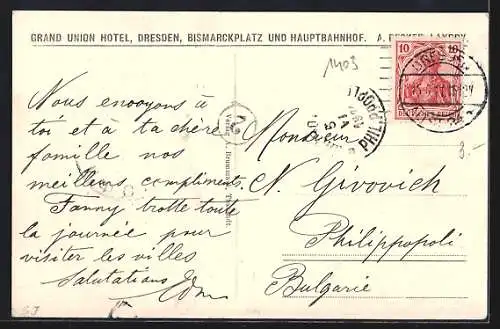 GRAND UNION HOTEL, DRESDEN, BISMARCKPLATZ UND HAUPTBAHNHOF.
1403
10 10
Nous envoyons à
toi et à ta chère
famille nos
meilleurs compliments.
Fanny trotte toute
la journée pour
visiter les villes
Salutations
Monsieur
N. Givovich
Philippopoli
Bulgarie
8.-